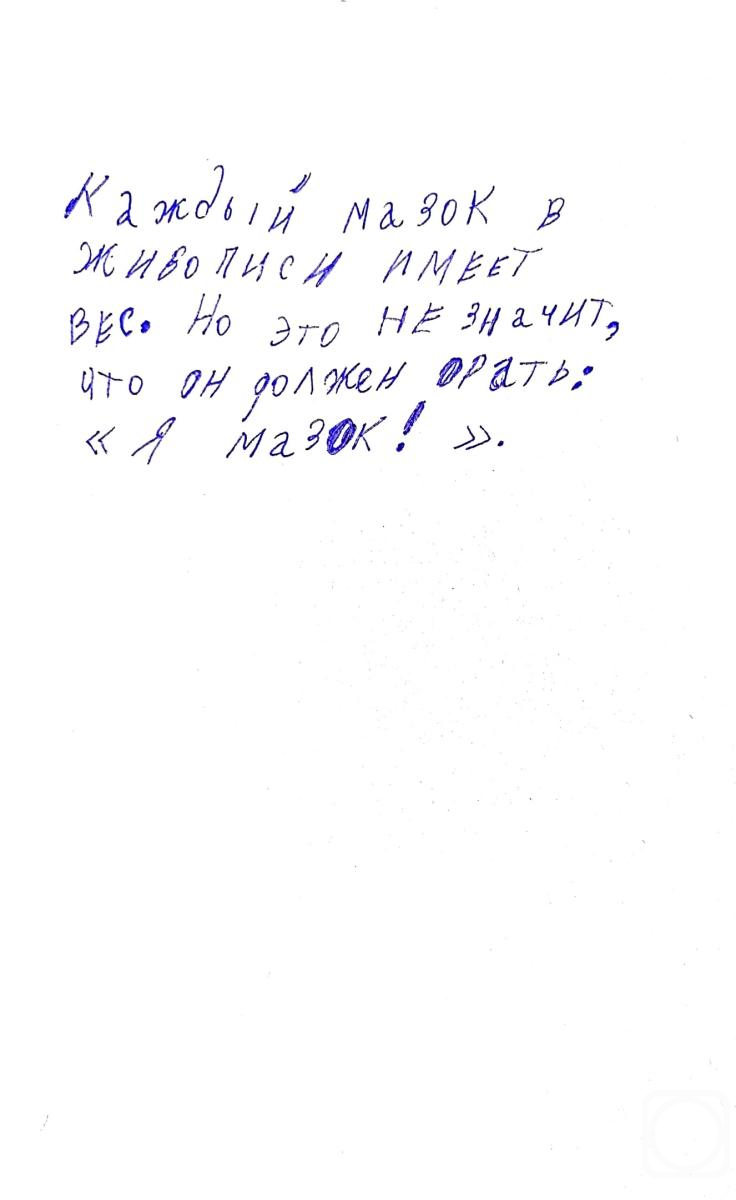 Каждый мазок в
живописи имеет
вес. Но это не значит,
что он должен орать:
« Я мазок! ».